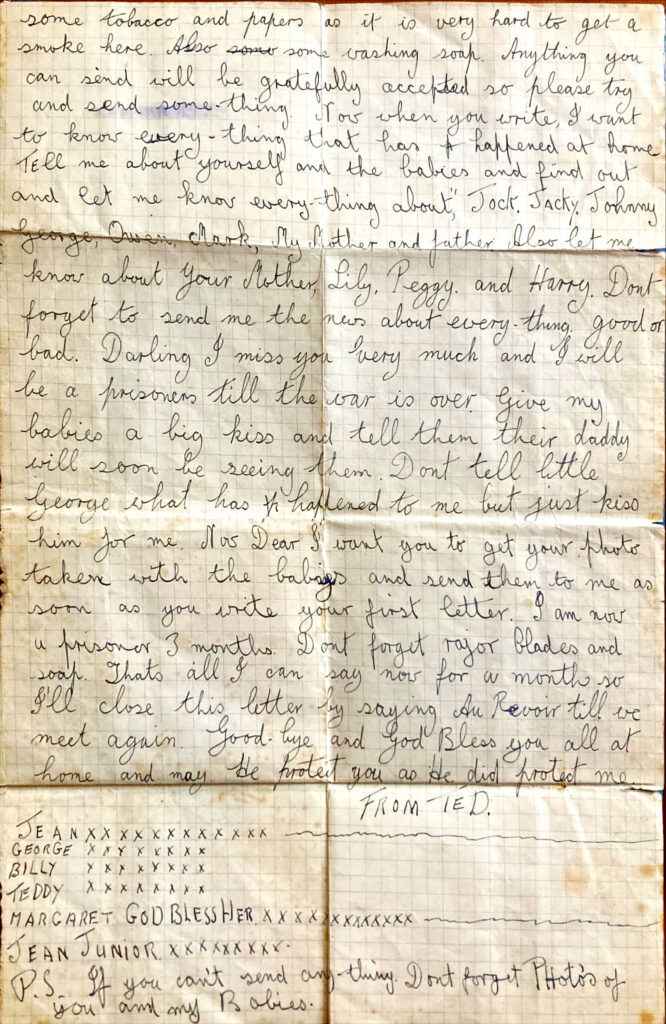 some tobacco and papers as it is very hard to get a
smoke here. Also some some washing soap. Anything you
can send will be gratefully accepted so please try
and send some-thing. Now when you write, I want
to know every-thing that has happened at home
Tell me about yourself and the babies and find out
and let me know every-thing about, Jock, Jacky, Johnny
George, Owen, Mark, My Mother and father Also let me
know about Your Mother, Lily, Peggy. and Harry. Dont
forget to send me the news about every-thing, good or
bad. Darling I miss you very much and I will
be a prisoners till the war is over. Give my
babies a big kiss and tell them their daddy
will soon be seeing them. Dont tell little
George what has happened to me but just kiss
him for me. Now Dear I want you to get your photo
taken with the babys and send them to me as
soon as you write your first letter. I am now
a prisoner 3 months. Dont forget razor blades and
soap. Thats all I can say now for a month so
I'll close this letter by saying Au Revoir till we
meet again. Good-bye and God Bless you all at
home and may He protect you as He did protect me.
FROM TED.
JEAN x x x x x x x x x x x x
GEORGE x x x x x x x x
BILLY x x x x x x x x
TEDDY x x x x x x x x
MARGARET GOD BLESS HER. x x x x x x x x x x x x
JEAN JUNIOR. x x x x x x x x x.
P.S. If you can't send any-thing. Dont forget Photo's of
you and my Babies.